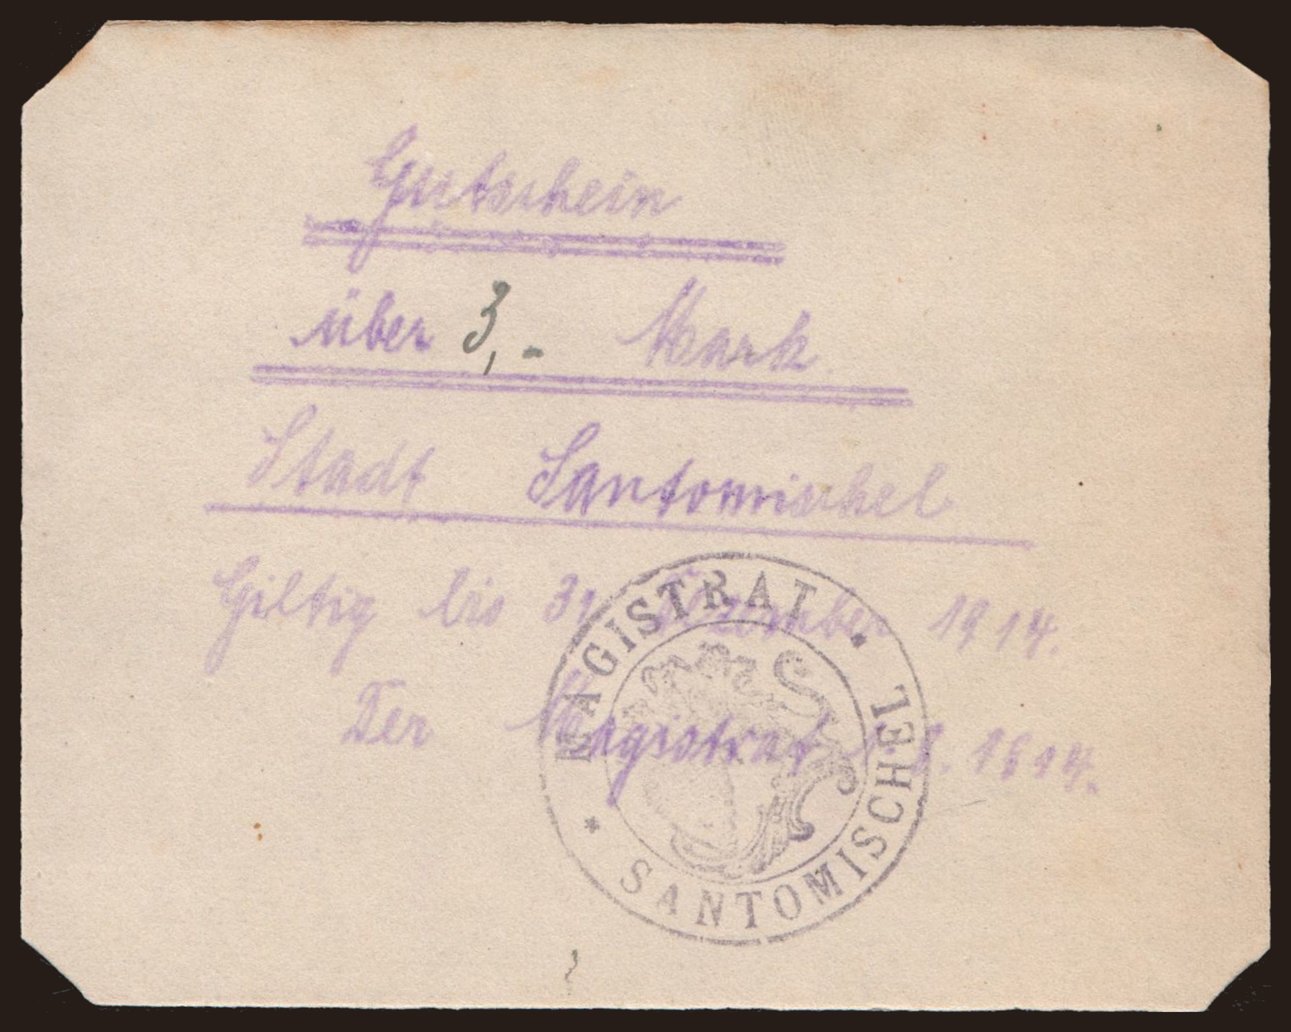 Gutschein
über 3,- Mark
Stadt Santomischel
Giltig bis 31 Dezember 1914.
Der Magistrat 1914.
MAGISTRAT
SANTOMISCHEL